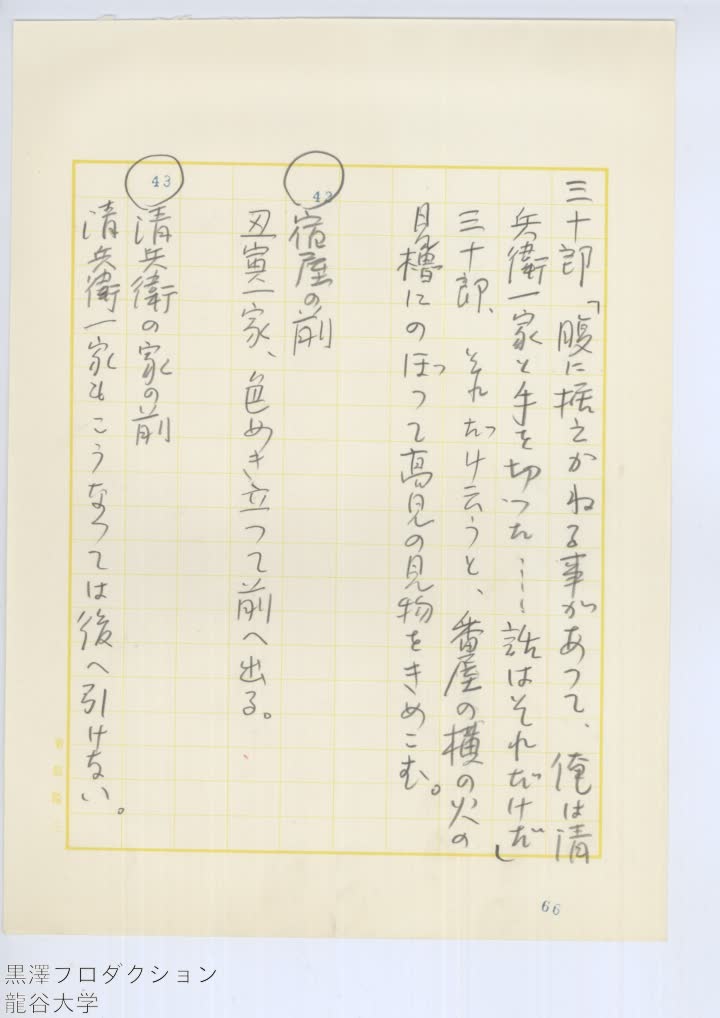 三十郎「腹に据えかねる事があつて、俺は清
兵衛一家と手を切つた……話はそれだけだ」
三十郎、それだけ云うと、番屋の横の火の
見櫓にのぼつて高見の見物をきめこむ。
43
宿屋の前
丑寅一家、色めき立つて前へ出る。
43
清兵衛の家の前
清兵衛一家もこうなつては後へ引けない。
66
黒澤フロダクション
龍谷大学